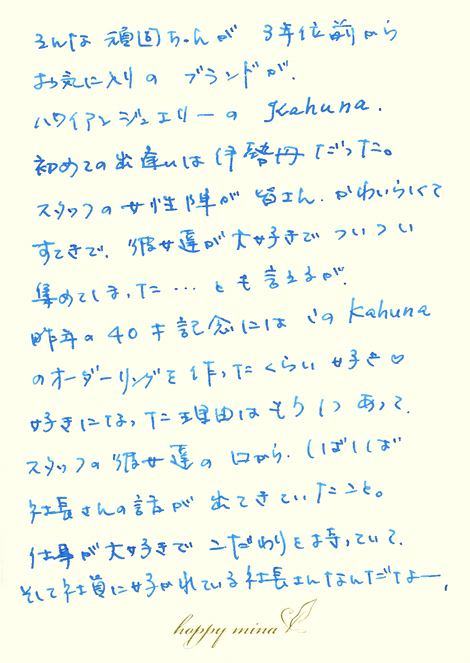 そんな 頑固ちゃんが 3年位前から
お気に入りの ブランドが、
ハワイアンジュエリーの Kahuna.
初めての出逢いは 伊勢丹 だった。
スタッフの女性陣が 皆さん、かわいらしくて
すてきで、彼女達が大好きで ついつい
集めてしまった…とも言えるが、
昨年の40才記念には このKahuna
のオーダーリングを作ったくらい好き♡
好きになった理由はもう1つあって、
スタッフの彼女達の口から、しばしば
社長さんの話が 出てきていたこと。
仕事が大好きで こだわりを持っていて、
そして社員に好かれている社長さんなんだなー、
happy mina